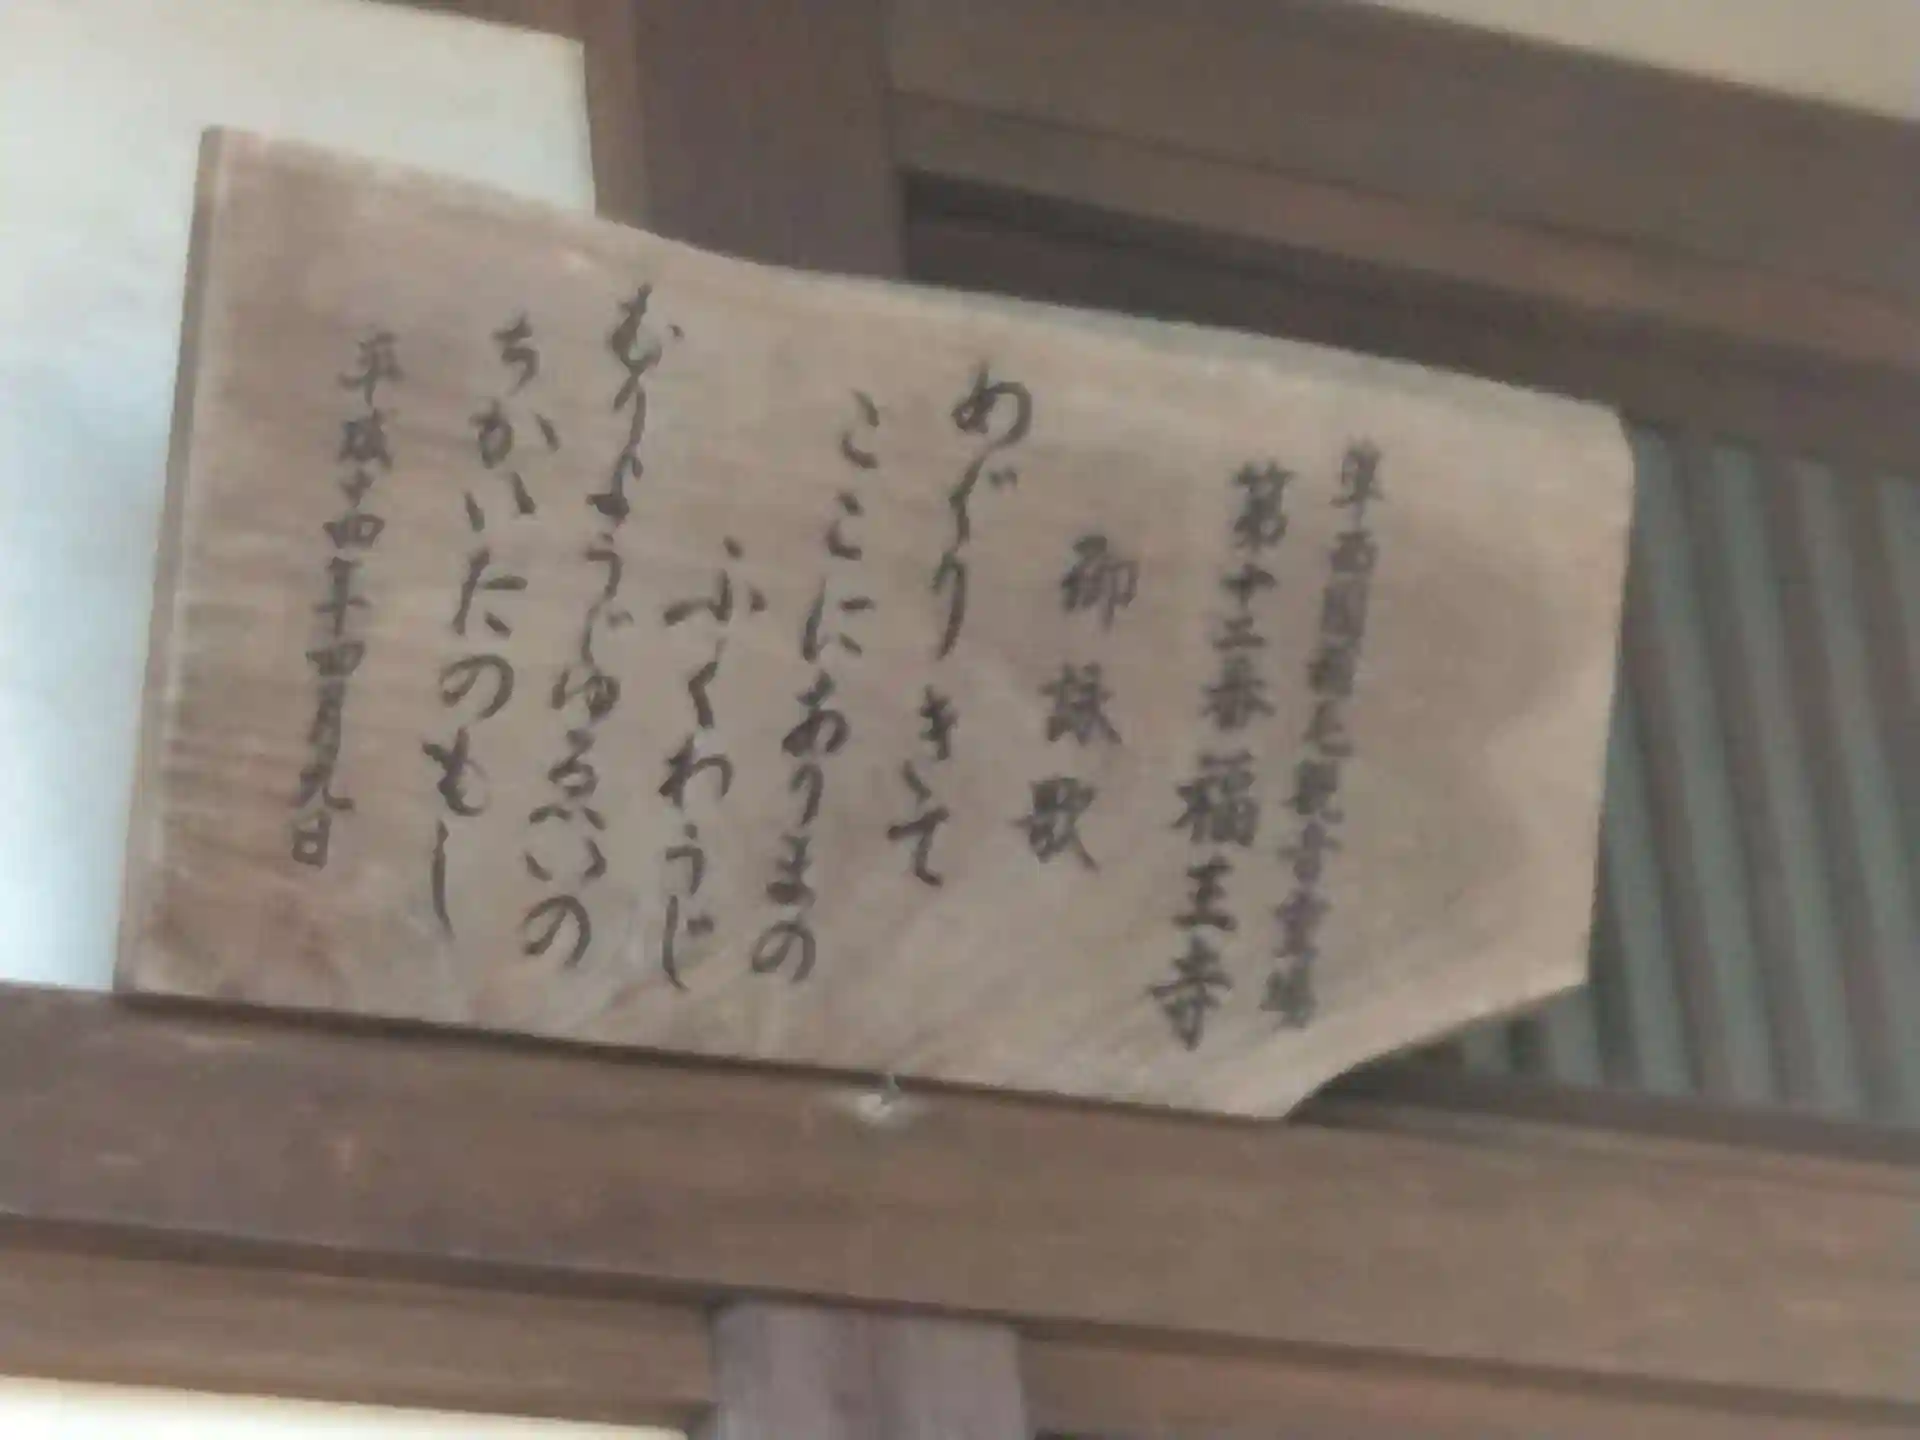 準西国稲毛観音霊場
第十三番福王寺
御詠歌
めぐりきて
ここにありまの
ふくわうじ
むりようじゆゑいの
ちかいたのもし
平成十四年四月九日